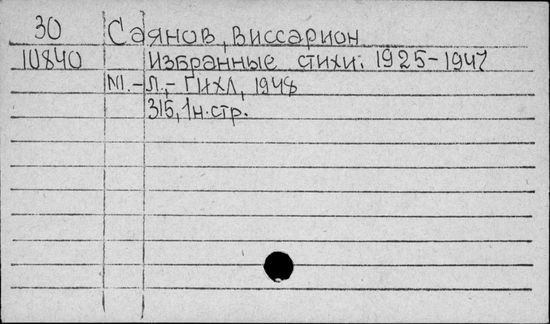 30 Саянов, Виссарион
10840 Избранные стихи. 1925-1947
М.-Л.,- Гихл, 1948
315, 1 н.стр.